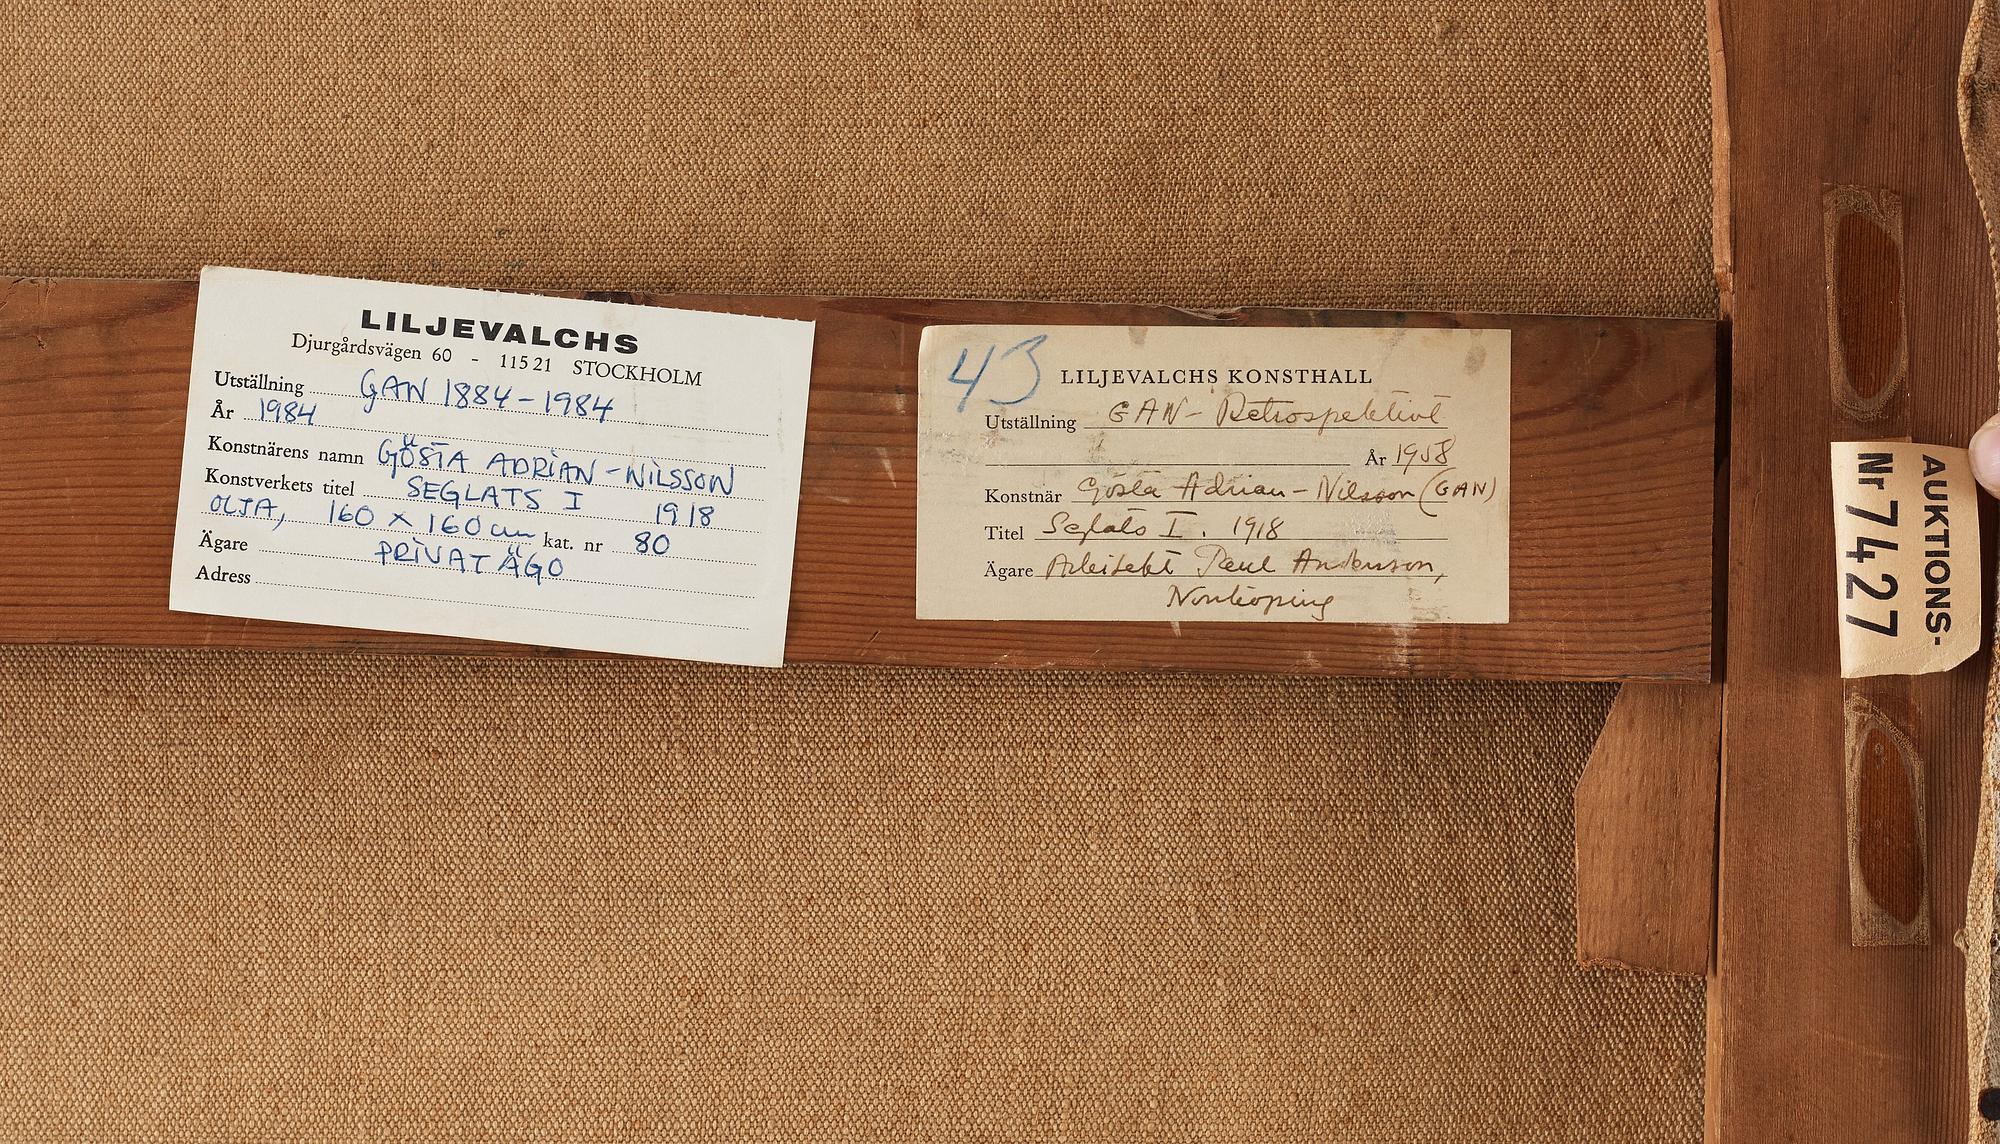 LILJEVALCHS
Djurgårdsvägen 60 - 115 21 STOCKHOLM
Utställning GAN 1884-1984
År 1984
Konstnärens namn GÖSTA ADRIAN-NILSSON
Konstverkets titel SEGLATS I 1918
OLJA, 160 x 160 cm kat. nr 80
Ägare PRIVAT ÄGO
Adress
43
LILJEVALCHS KONSTHALL
Utställning GAN-Retrospektivt
År 1958
Konstnär Gösta Adrian-Nilsson (GAN)
Titel Seglats I. 1918
Ägare Arkitekt Paul Andersson,
Norrköping
AUKTIONS-
Nr 7427